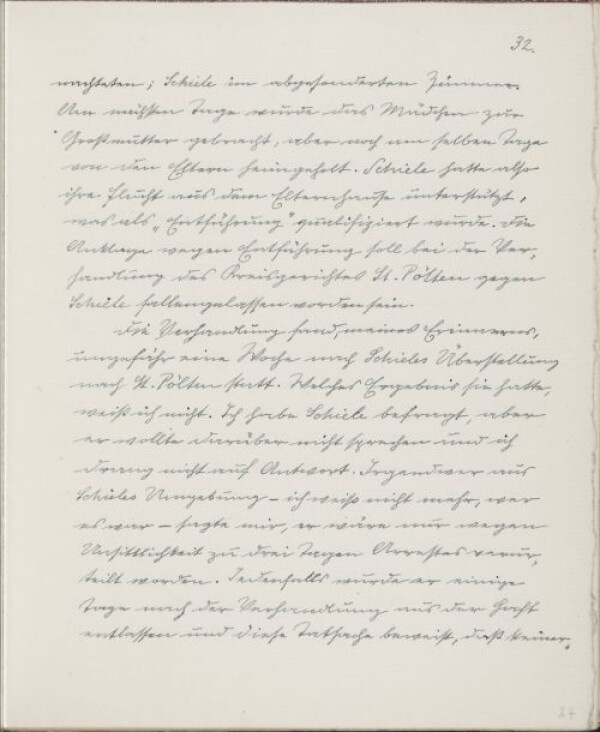 32.
nachteten; Schiele im abgesonderten Zimmer.
Am nächsten Tage wurde das Mädchen zur
Großmutter gebracht, aber noch am selben Tage
von den Eltern heimgeholt. Schiele hatte also
ihre Flucht aus dem Elternhause unterstützt,
was als „Entführung“ qualifiziert wurde. Die
Anklage wegen Entführung soll bei der Ver-
handlung des Kreisgerichtes St. Pölten gegen
Schiele fallengelassen worden sein.
Die Verhandlung fand, meines Erinnerns,
ungefähr eine Woche nach Schieles Überstellung
nach St. Pölten statt. Welches Ergebnis sie hatte,
weiß ich nicht. Ich habe Schiele befragt, aber
er wollte darüber nicht sprechen und ich
drang nicht auf Antwort. Irgendwer aus
Schieles Umgebung – ich weiß nicht mehr, wer
es war – sagte mir, er wäre nur wegen
Unsittlichkeit zu drei Tagen Arrestes verur-
teilt worden. Jedenfalls wurde er einige
Tage nach der Verhandlung aus der Haft
entlassen und diese Tatsache beweist, daß keiner-